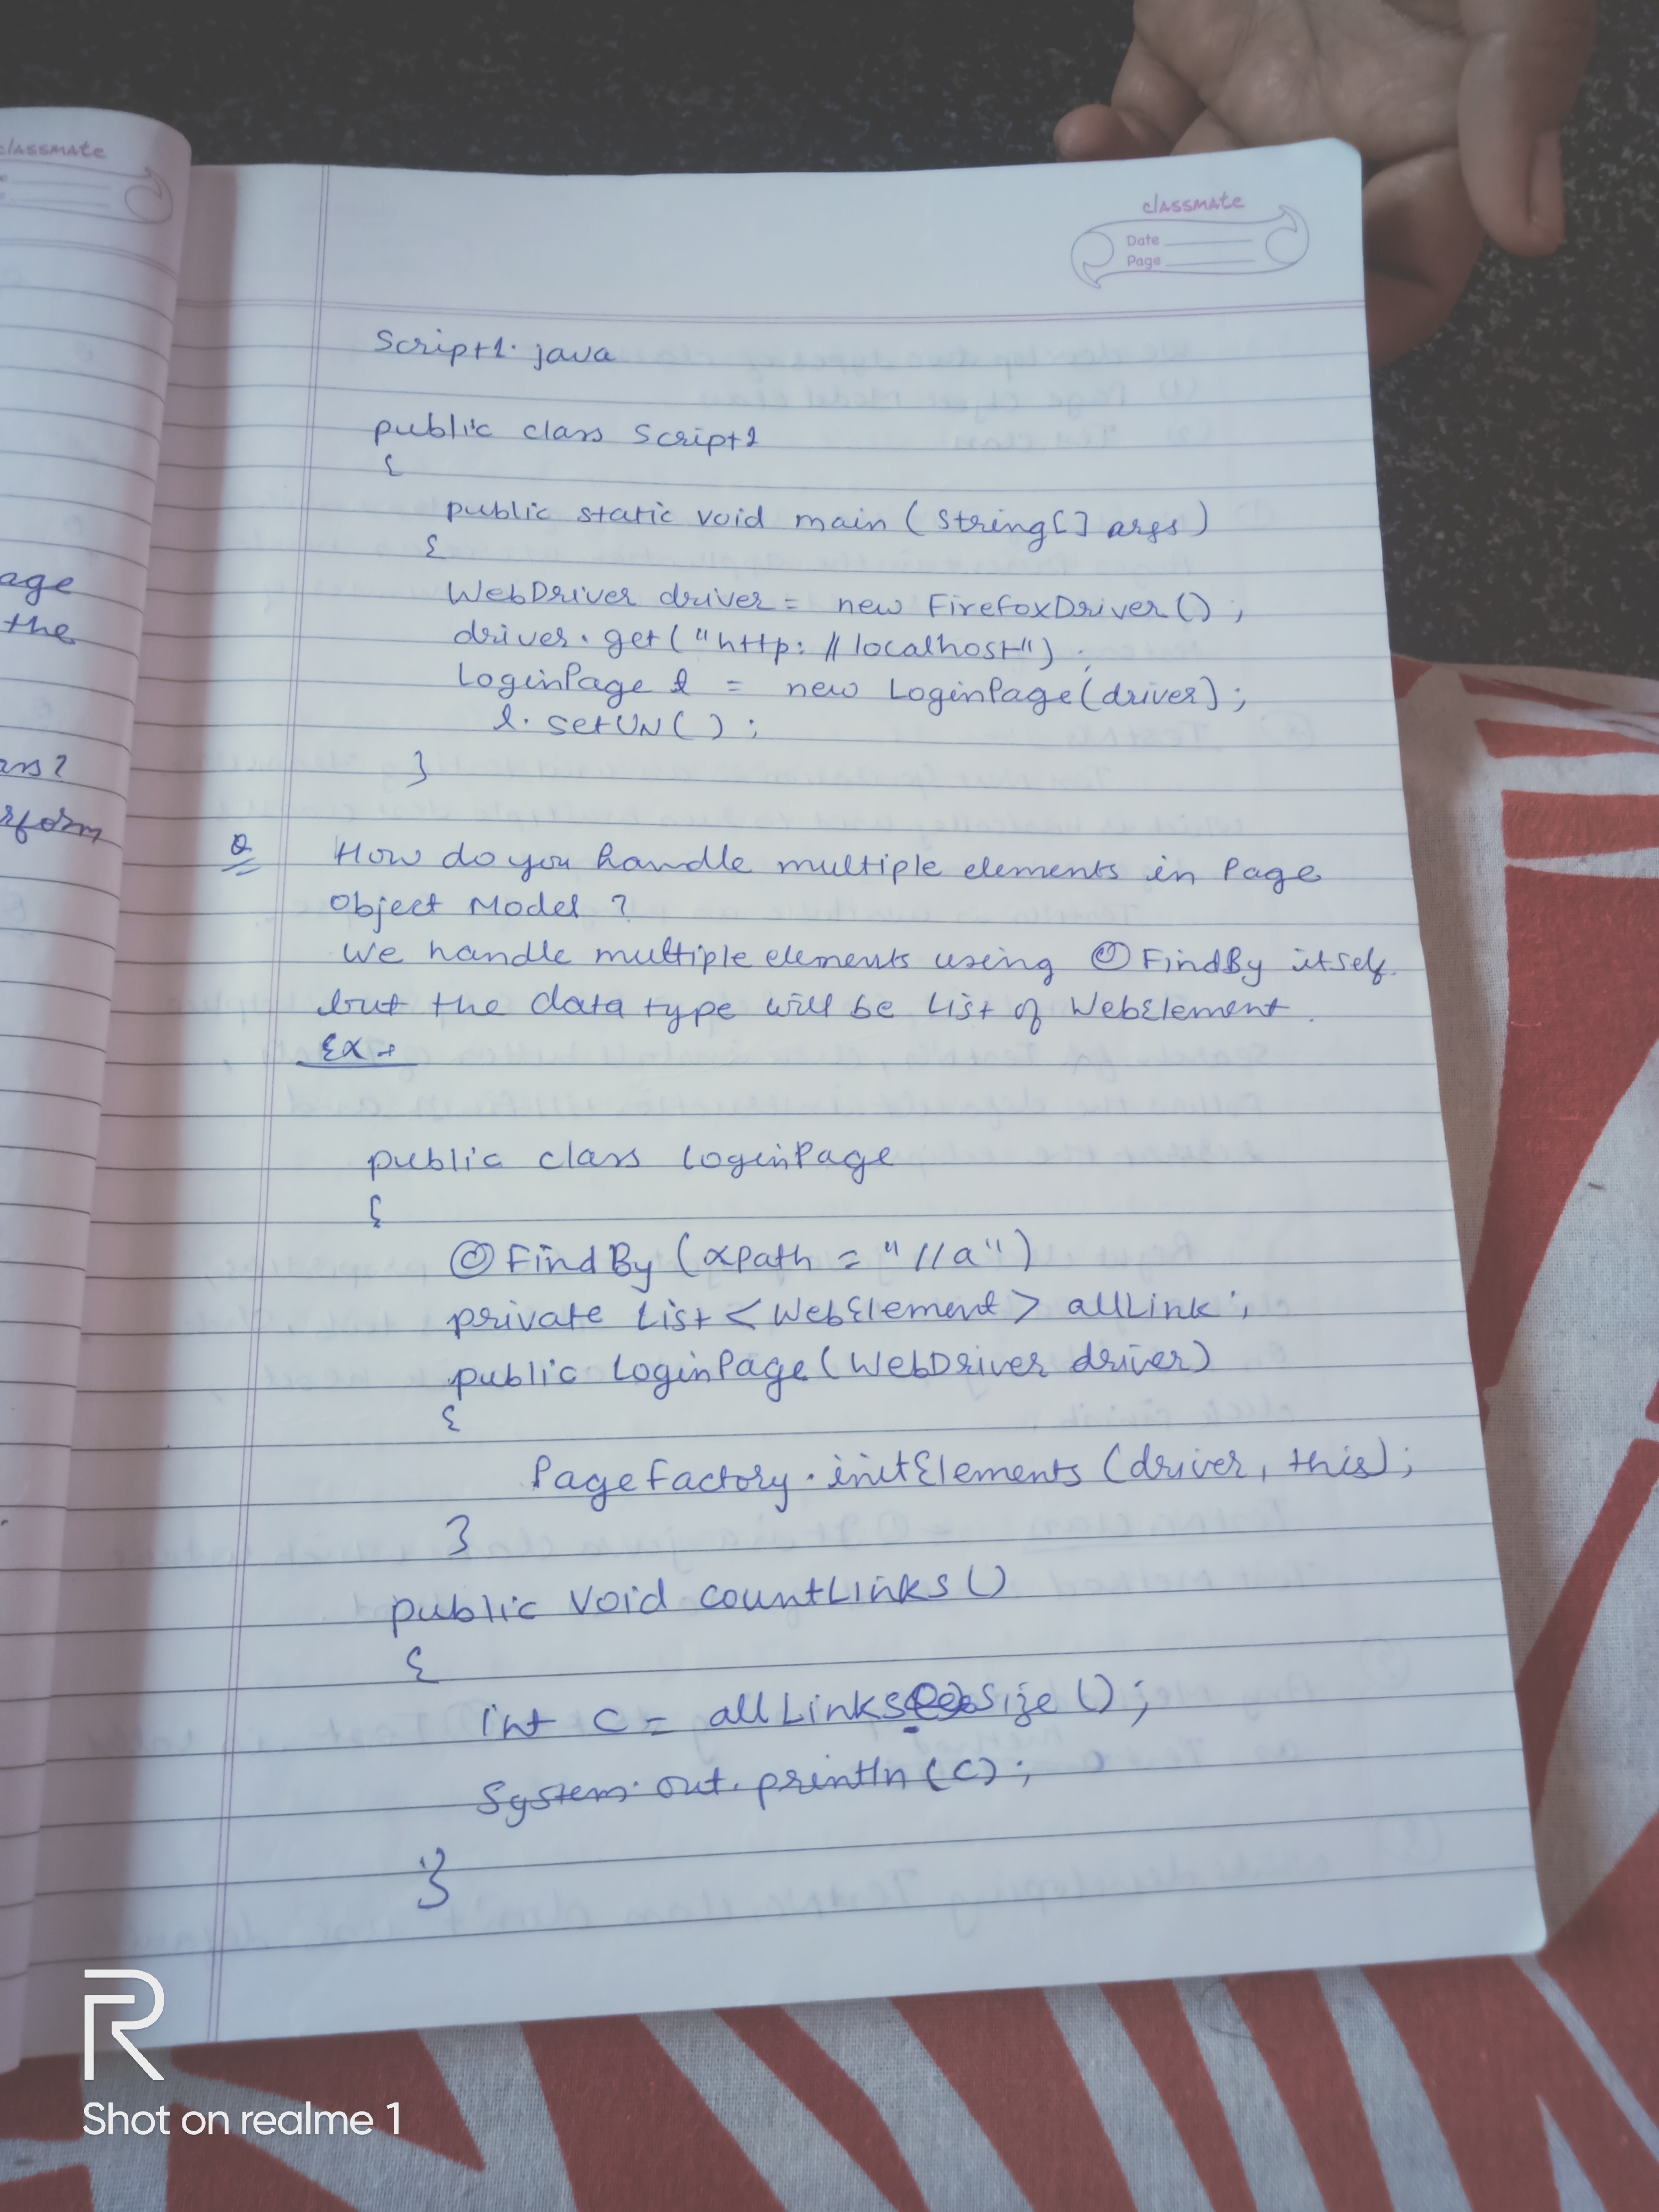 classmate
age
the
ass?
rform
classmate
Date
Page
Script1. java
public class Script1
{
public static void main (String[] args)
{
WebDriver driver = new FirefoxDriver();
driver.get("http://localhost");
LoginPage l = new LoginPage(driver];
l. setUN();
}
Q How do you handle multiple elements in Page
Object Model ?
We handle multiple elements using @FindBy itself.
but the data type will be List of WebElement.
Ex →
public class LoginPage
{
@FindBy (xPath = "//a")
private List <WebElement> allLink;
public LoginPage(WebDriver driver)
{
PageFactory.initElements(driver, this);
}
public void countLinks()
{
int c = allLinks size();
System.out.println(c);
}
}
R
Shot on realme 1